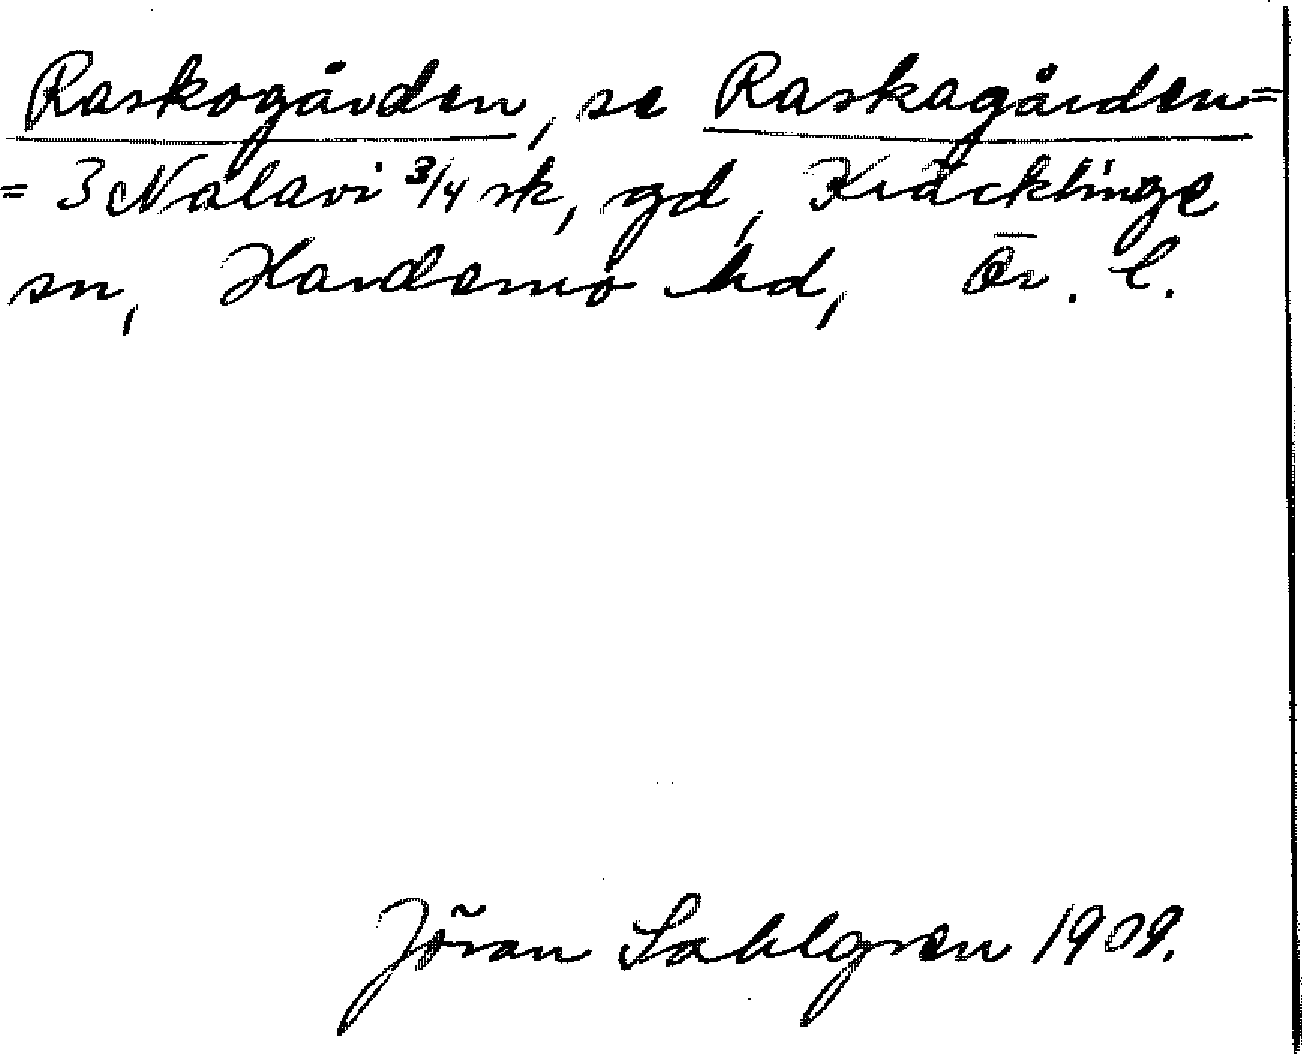 Raskogården, se Raskagården=
= 3 Nalavi 3/4 sk, gd, Kräcklinge
sn, Hardemo hd, Ör. l.
Jöran Sahlgren 1909.